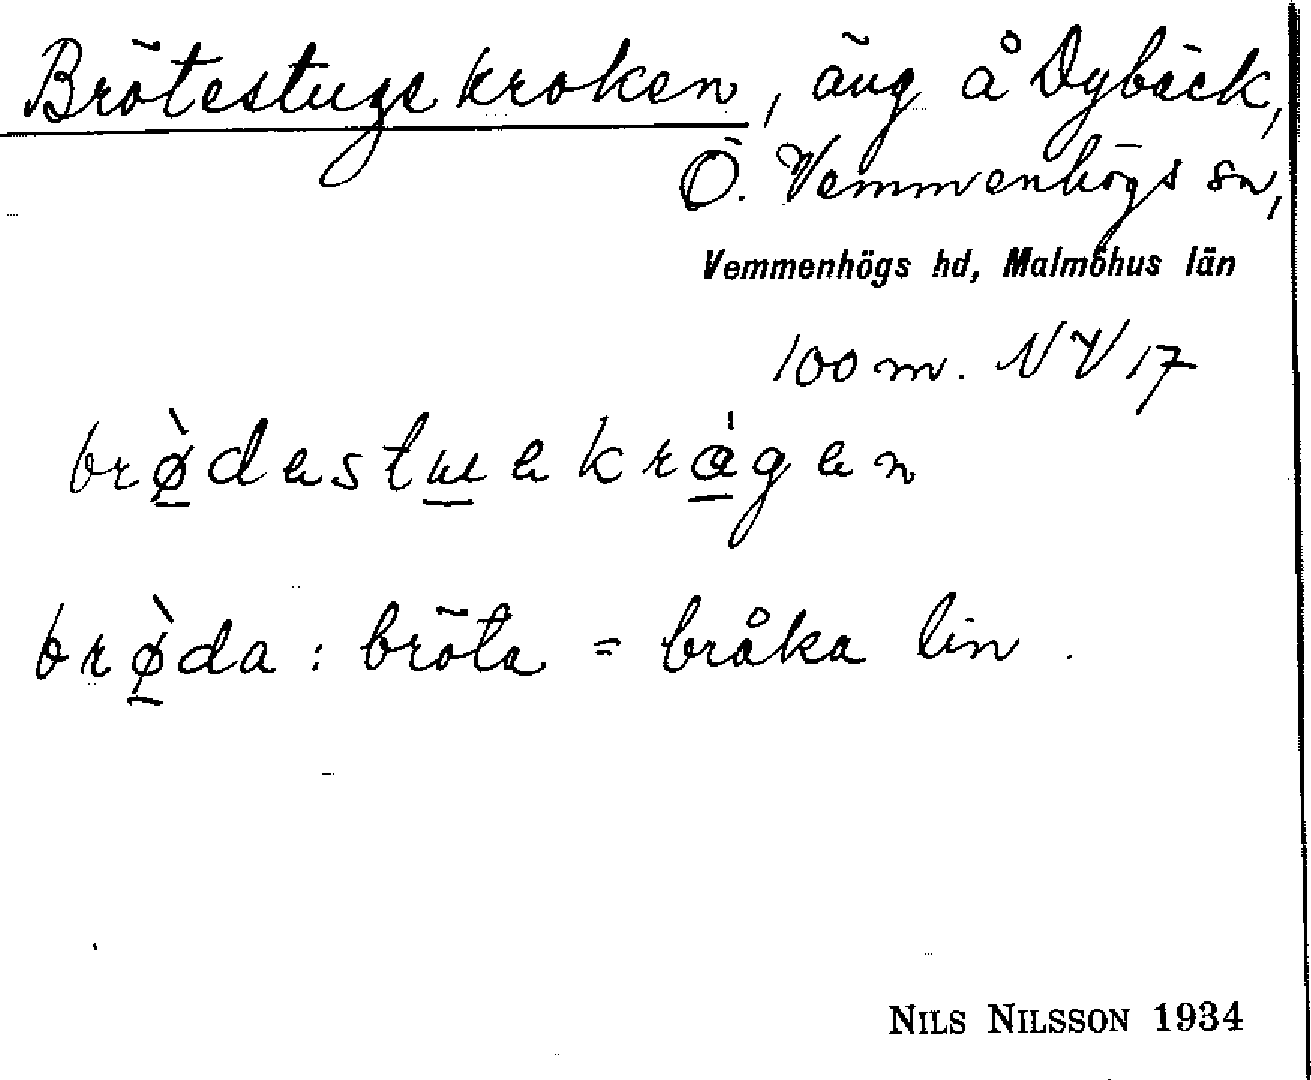 Brötestugekroken, äng å Dybäck,
Ö. Vemmenhögs sn,
Vemmenhögs hd, Malmöhus län
100 m. NV 17
brø̀dastuakrågan
brø̀da : bröta = bråka lin.
NILS NILSSON 1934